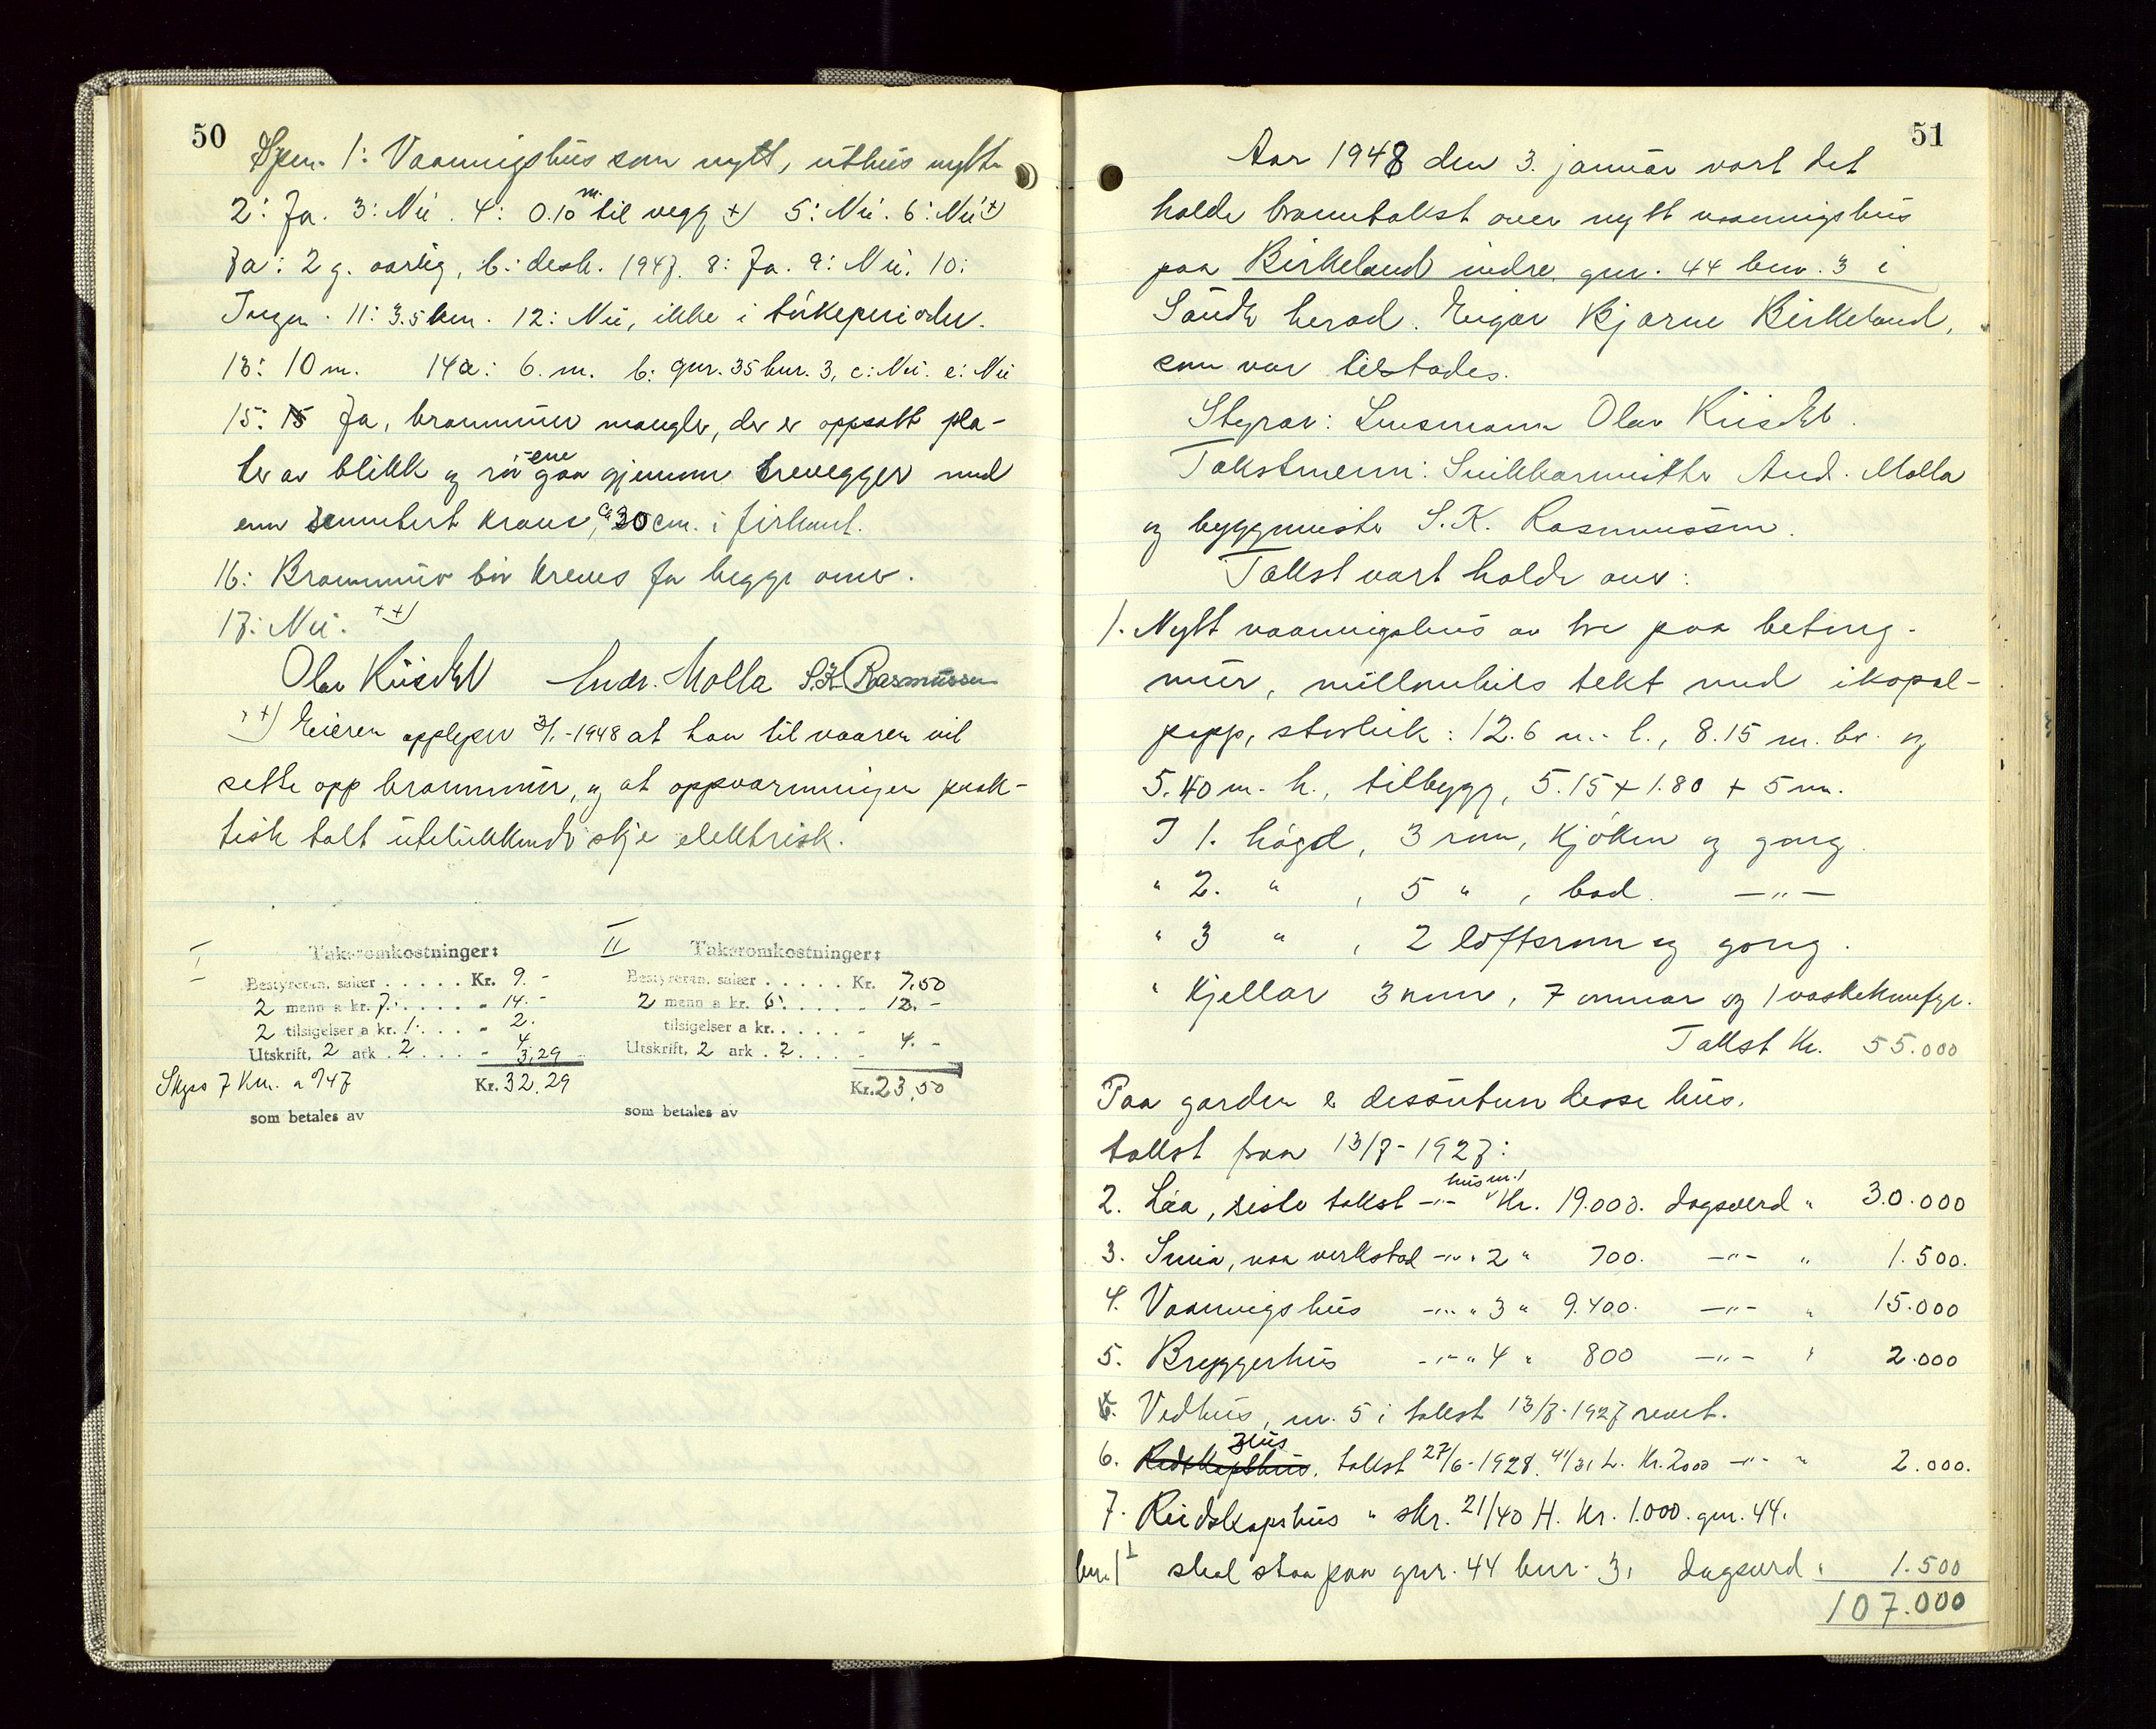 50
Spm. 1: Vaaningshus som nytt, uthus nytt.
2: Ja. 3: Nei. 4: 0.10 m. til vegg +) 5: Nei. 6: Nei +)
7a: 2 g. aarlig, b: desbr. 1947. 8: Ja. 9: Nei. 10:
Ingen. 11: 3.5 km. 12: Nei, ikke i tørkeperioder.
13: 10 m. 14a: 6. m. b: gnr. 35 bnr. 3, c: Nei. e: Nei
15: Ja, brannmur mangler, der er oppsatt pla-
ter av blikk og rør-ene gaar gjennom trevegger med
enn sementert krans, ca 30 cm. i firkant.
16: Brannmur bør kreves for begge omr.
17: Nei. ++)
Olav Kiisdal Andr. Molla S.K. Rasmussen
++) Eieren opplyser 3/1-1948 at han til vaaren vil
sette opp brannmur, og at oppvarmningen prak-
tisk talt utelukkende skje elektrisk.
I Takstomkostninger: II Takstomkostninger:
Bestyreren, salær . . . . . Kr. 9.- Bestyreren, salær . . . . . Kr. 7,50
2 menn a kr. 7. . . . - 14.- 2 menn a kr. 6. . . . - 12.-
2 tilsigelser a kr. 1. . . . - 2. tilsigelser a kr. . . . . -
Utskrift, 2 ark . 2 . . . - 4 Utskrift, 2 ark . 2 . . . - 4.-
3,29
Skyss 7 Km. a 0/47 Kr. 32,29 Kr. 23,50
som betales av som betales av
51
Aar 1948 den 3. januar vart det
halde branntakst over nytt vaaningshus
paa Birkeland indre, gnr. 44 bnr. 3 i
Saude herad. Eigar Bjarne Birkeland,
som var tilstades.
Styrar: Lensmann Olav Kiisdal.
Takstmenn: Snikkarmeister And. Molla
og byggmeister S. K. Rasmussen.
Takst vart halde over:
1. Nytt vaaningshus av tre paa betong-
mur, millombils tekt med ikopal-
papp, storleik: 12.6 m. l., 8.15 m. br. og
5.40 m. h., tilbygg, 5.15 + 1.80 + 5 m.
I 1. høgd, 3 rom, kjøken og gang.
" 2. " , 5 " , bad. —"—
" 3 " , 2 loftsrom og gang.
" Kjellar 3 rom, 7 omnar og 1 vaskekumfyr.
Takst Kr. 55.000
Paa garden er dessutan desse hus.
takst paa 13/7-1927:
2. Løa, siste takst -"- hus nr. 1 Kr. 19.000. dagsverd " 30.000
3. Smia, naa verkstad -"- " 2 " 700. -"- " 1.500.
4. Vaaningshus -"- " 3 " 9.400. -"- " 15.000
5. Bryggerhus -"- " 4 " 800 -"- " 2.000
6. Vedhus, nr. 5 i takst 13/7-1927 revet.
6. Reidskapshus. takst 27/6-1928. 41/31 L. Kr. 2000 -"- " 2.000.
7. Reidskapshus " skr. 21/40 H. Kr. 1.000. gnr. 44.
bnr. 1 skal staa paa gnr. 44 bnr. 3, dagsverd " 1.500
107.000